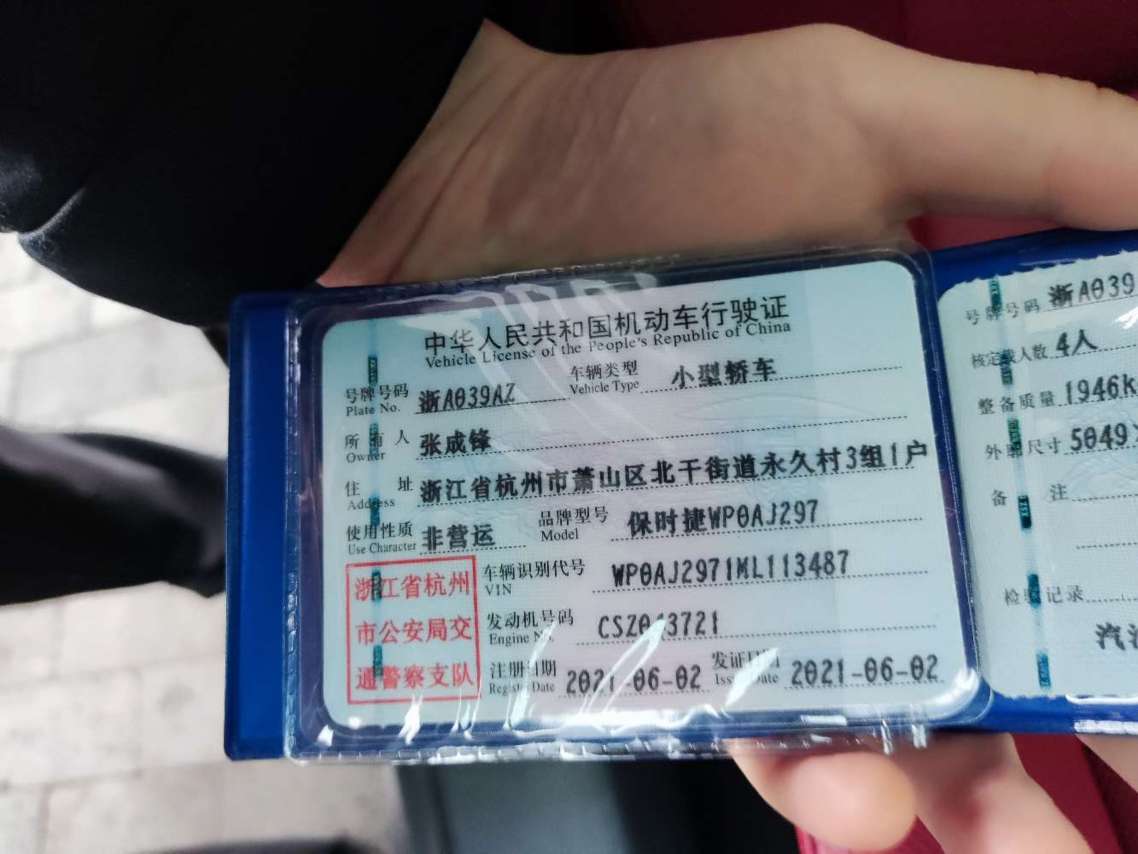 中华人民共和国机动车行驶证
Vehicle License of the People's Republic of China
号牌号码 浙A039AZ 车辆类型 小型轿车
Plate No. Vehicle Type
所有人 张成锋
Owner
住址 浙江省杭州市萧山区北干街道永久村3组1户
Address
使用性质 非营运 品牌型号 保时捷WP0AJ297
Use Character Model
浙江省杭州
市公安局交
通警察支队
车辆识别代号 WP0AJ2971ML113487
VIN
发动机号码
Engine No.
注册日期 2021-06-02 发证日期 2021-06-02
Register Date Issue Date
号牌号码 浙A039
核定载人数 4人
整备质量 1946k
外廓尺寸 5049
备注
检验记录